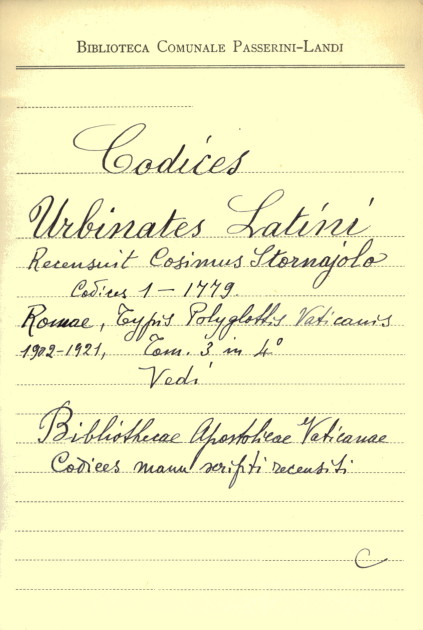 BIBLIOTECA COMUNALE PASSERINI-LANDI
Codices
Urbinates Latini
Recensuit Cosimus Stornajolo
Codices 1 - 1779
Romae, Typis Polyglottis Vaticanis
1902-1921, Tom. 3 in 4°
Vedi
Bibliothecae Apostolicae Vaticanae
Codices manu scripti recensiti
C